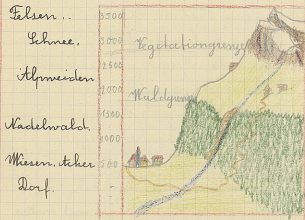 Felsen..
Schnee.
Alpweiden
Nadelwald.
Wiesen, Acher
Dorf.
3500
3000
2500
2000
1500
1000
500
Vegetationgrenze
Waldgrenze